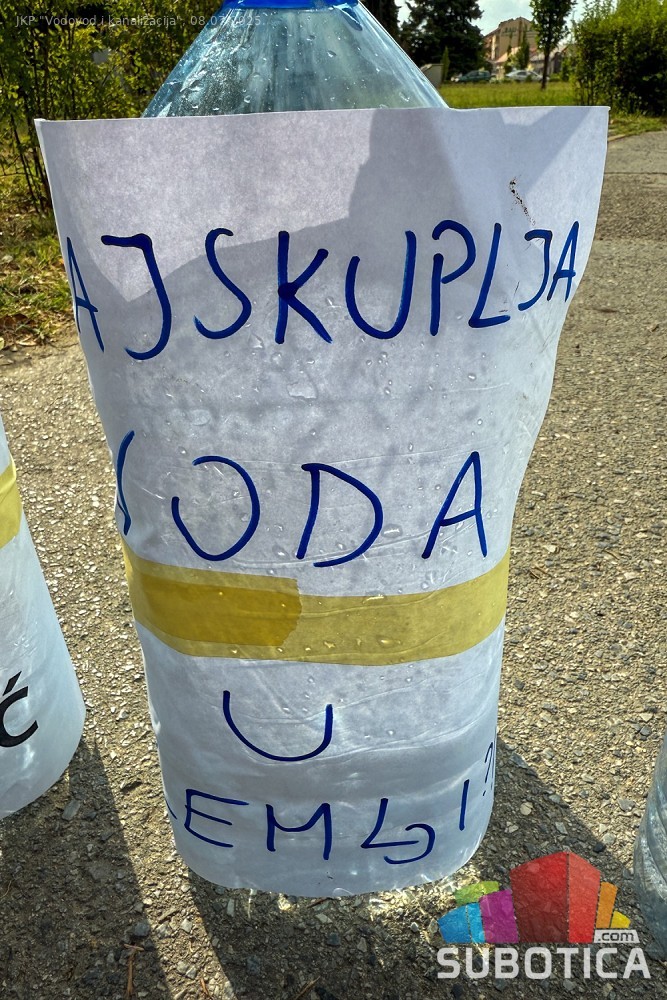 JKP "Vodovod i kanalizacija", 08.07.2025.
AJSKUPLJA
VODA
U
ZEMLJI?
Ć
.com
SUBOTICA